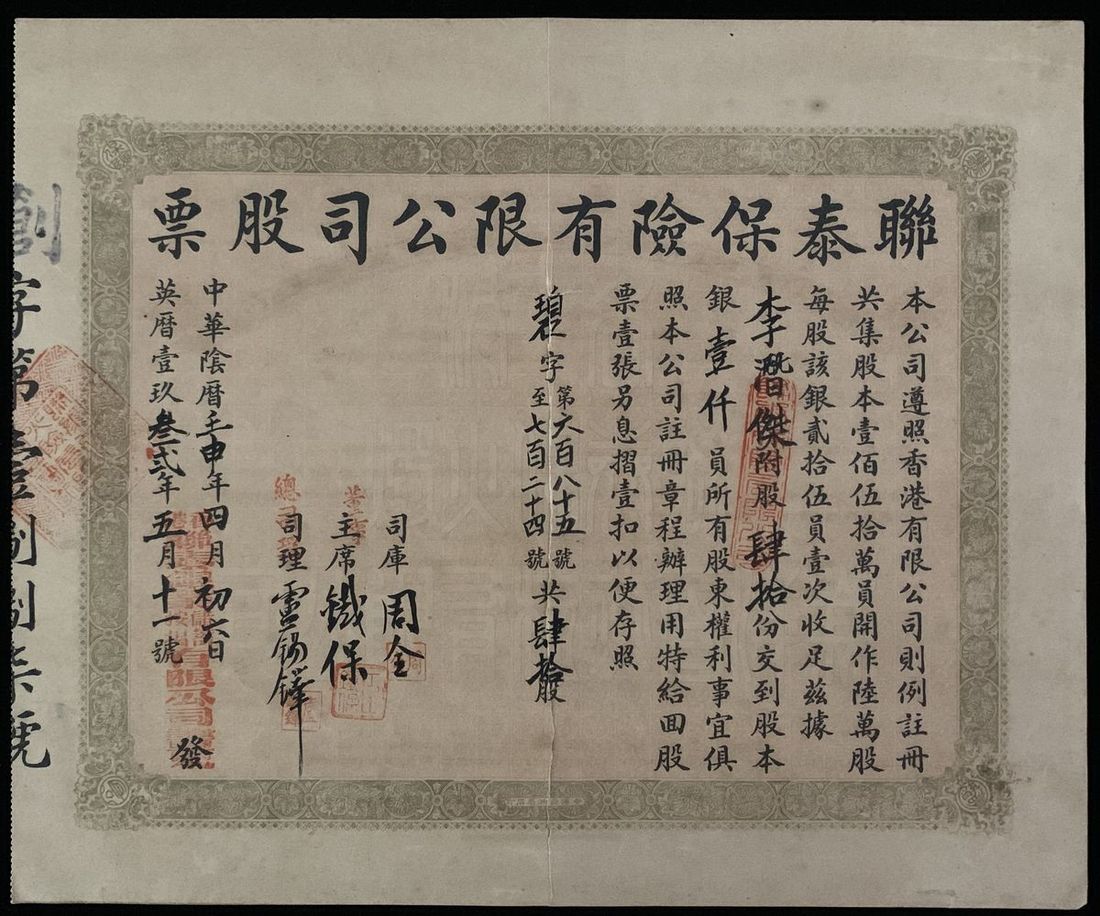 聯泰保險有限公司股票
本公司遵照香港有限公司則例註冊
共集股本壹佰伍拾萬員開作陸萬股
每股該銀貳拾伍員壹次收足茲據
李傑附股肆拾份交到股本
銀壹仟員所有股東權利事宜俱
照本公司註冊章程辦理用特給回股
票壹張另息摺壹扣以便存照
碧字第六百八十五號
至七百二十四號共肆拾股
司庫周全
主席鐵保
司理盧錫
中華陰曆壬申年四月初六日
英曆壹玖叁弍年五月十一號
發
有限公司
字第壹捌捌號